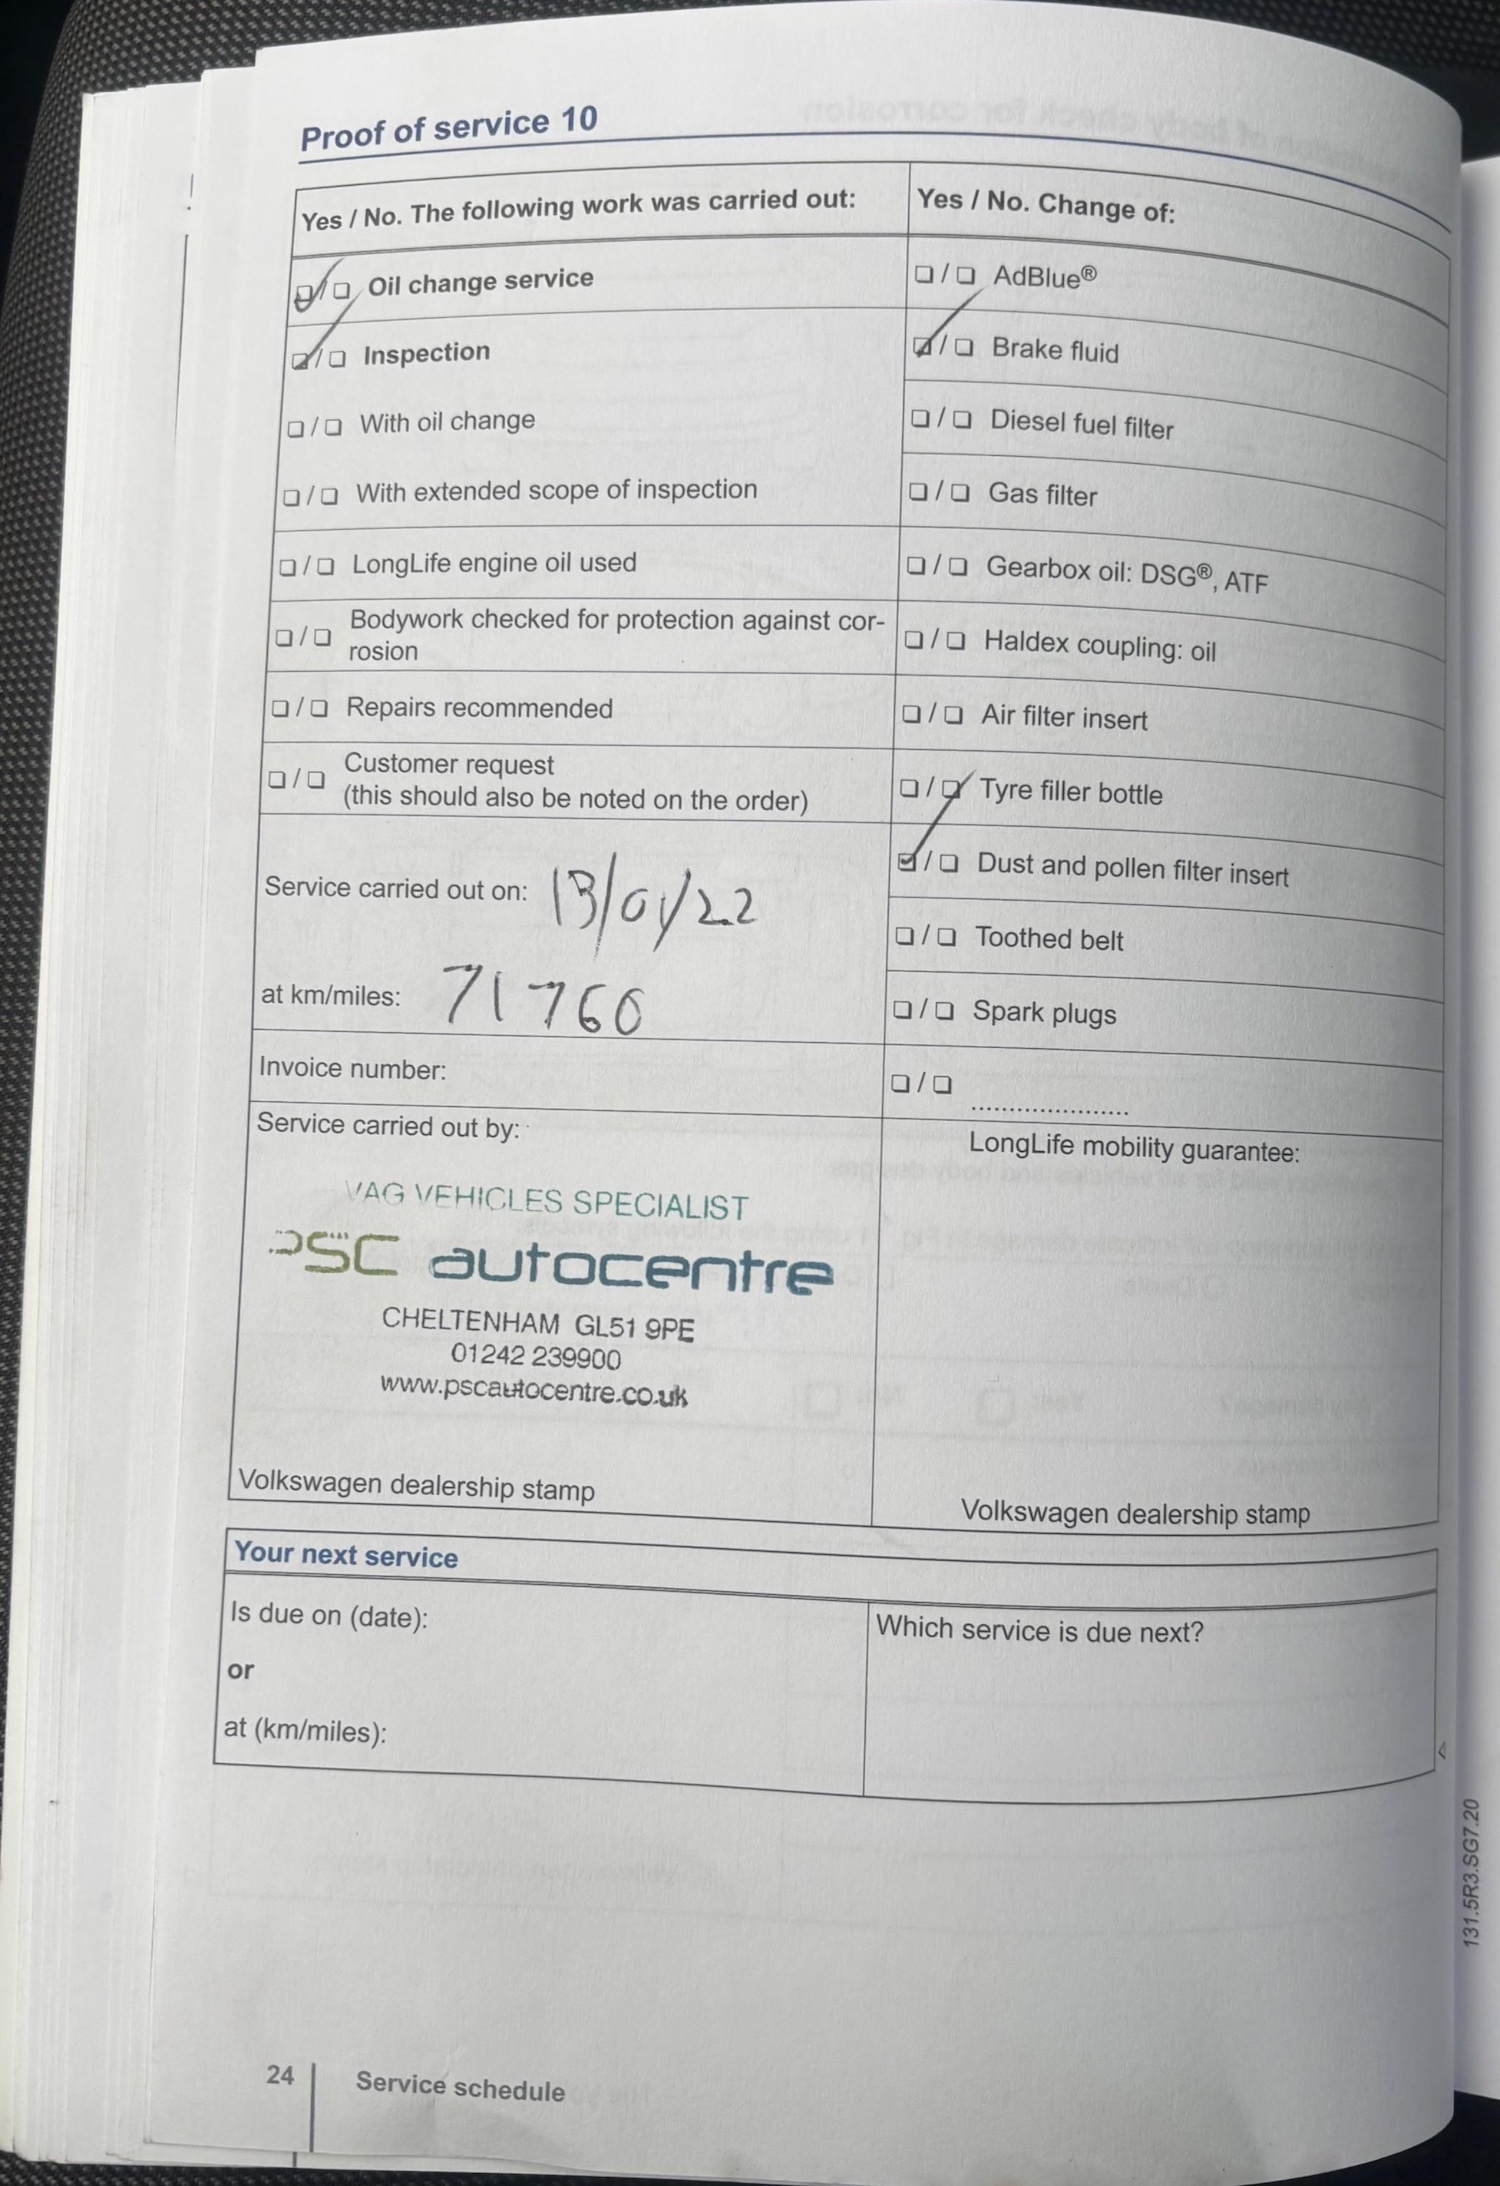 Proof of service 10
Yes / No. The following work was carried out:
☑/☐ Oil change service
☑/☐ Inspection
☐/☐ With oil change
☐/☐ With extended scope of inspection
☐/☐ LongLife engine oil used
☐/☐ Bodywork checked for protection against cor-
rosion
☐/☐ Repairs recommended
☐/☐ Customer request
(this should also be noted on the order)
Service carried out on: 13/01/22
at km/miles: 71760
Invoice number:
Service carried out by:
VAG VEHICLES SPECIALIST
PSC autocentre
CHELTENHAM GL51 9PE
01242 239900
www.pscautocentre.co.uk
Volkswagen dealership stamp
Yes / No. Change of:
☐/☐ AdBlue®
☑/☐ Brake fluid
☐/☐ Diesel fuel filter
☐/☐ Gas filter
☐/☐ Gearbox oil: DSG®, ATF
☐/☐ Haldex coupling: oil
☐/☐ Air filter insert
☐/☐ Tyre filler bottle
☑/☐ Dust and pollen filter insert
☐/☐ Toothed belt
☐/☐ Spark plugs
☐/☐ .....................
LongLife mobility guarantee:
Volkswagen dealership stamp
Your next service
Is due on (date):
or
at (km/miles):
Which service is due next?
131.5R3.SG7.20
24
Service schedule